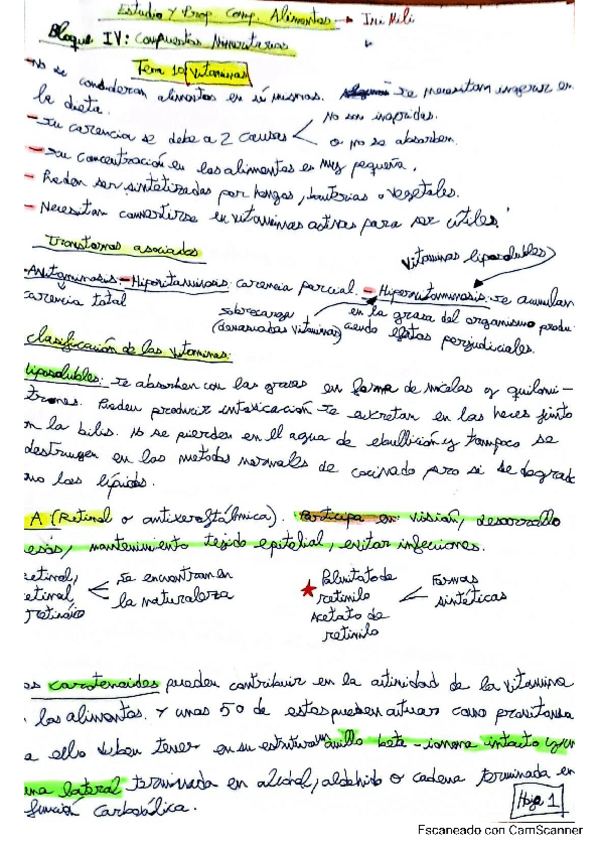 Estudio y Prop. Comp. Alimentos → Iru Meli
Bloque IV: Compuestos Minoritarios
Tema 10: Vitaminas
- No se consideran alimentos en sí mismas. Se necesitan ingerir en
la dieta.
- Su carencia se debe a 2 causas < No son ingeridas.
o no se absorben.
- Su concentración en los alimentos es muy pequeña.
- Pueden ser sintetizadas por hongos, bacterias o vegetales.
- Necesitan convertirse en vitaminas activas para ser útiles.
Transtornos asociados
Vitaminas liposolubles
- Avitaminosis: - Hipovitaminosis: carencia parcial. - Hipervitaminosis: se acumulan
carencia total
sobrecarga
(demasiadas vitaminas)
en la grasa del organismo produ-
ciendo efectos perjudiciales.
Clasificación de las vitaminas:
Liposolubles: se absorben con las grasas en forma de micelas y quilomi-
crones. Pueden producir intoxicación. Se excretan en las heces junto
con la bilis. No se pierden en el agua de ebullición y tampoco se
destruyen en los metodos normales de cocinado pero si se degrada
como los lípidos.
A (Retinol o antixeroftálmica). Participa en: visión, desarrollo
mantenimiento tejido epitelial, evitar infecciones.
retinol,
retinal,
retinóico
< se encuentran en
la naturaleza
★ Palmitato de
retinilo
Acetato de
retinilo
< Formas
sintéticas
os carotenoides pueden contribuir en la actividad de la vitamina
los alimentos. Y unos 50 de estos pueden actuar como provitamina
a ello deben tener en su estructura un anillo beta-ionona intacto y un
una lateral terminada en alcohol, aldehido o cadena terminada en
función carboxílica.
Hoja 1
Escaneado con CamScanner